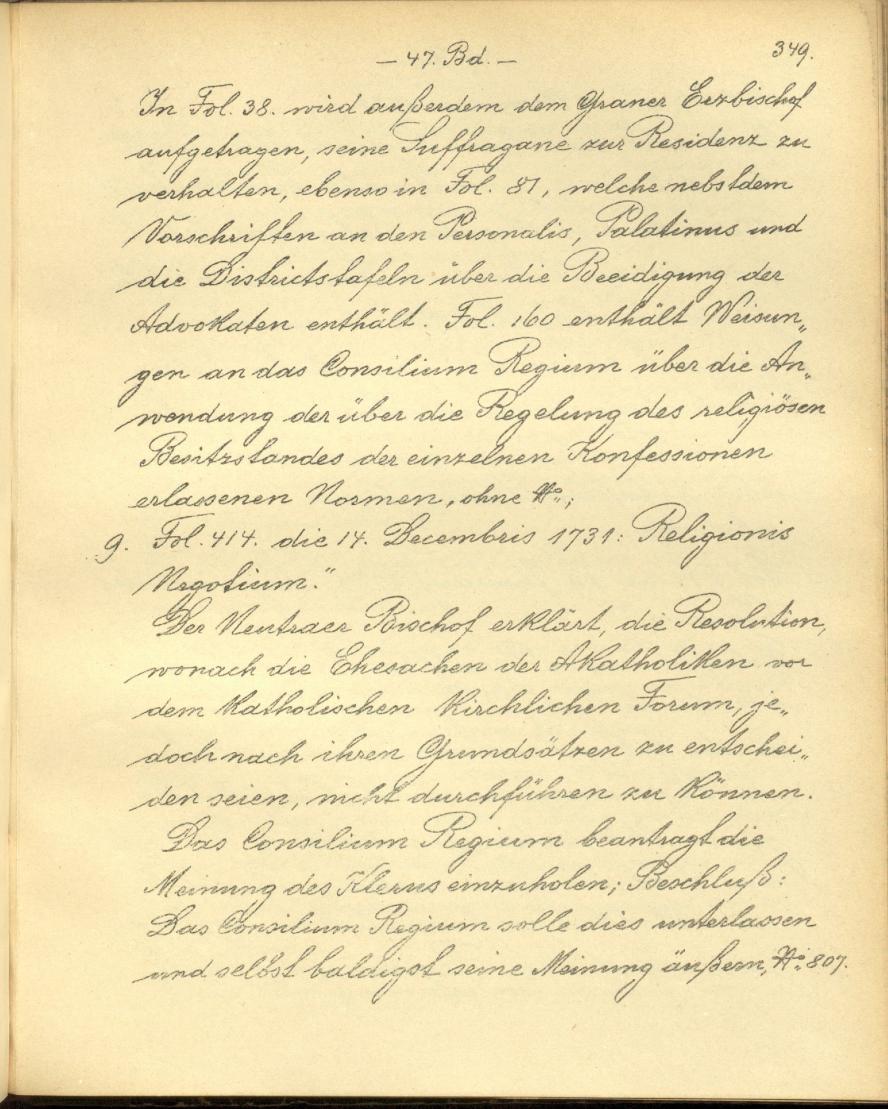 — 47. Bd. —
349.
In Fol. 38. wird außerdem dem Graner Erzbischof
aufgetragen, seine Suffragane zur Residenz zu
verhalten, ebenso in Fol. 81, welche nebstdem
Vorschriften an den Personalis, Palatinus und
die Districtstafeln über die Beeidigung der
Advokaten enthält. Fol. 160 enthält Weisun„
gen an das Consilium Regium über die An„
wendung der über die Regelung des religiösen
Besitzstandes der einzelnen Konfessionen
erlassenen Normen, ohne No„;
9. Fol. 414. die 14. Decembris 1731: Religionis
Negotium."
Der Neutraer Bischof erklärt, die Resolution,
wonach die Ehesachen der Akatholiken vor
dem katholischen kirchlichen Forum, je„
doch nach ihren Grundsätzen zu entschei„
den seien, nicht durchführen zu können.
Das Consilium Regium beantragt die
Meinung des Klerus einzuholen; Beschluß:
Das Consilium Regium solle dies unterlassen
und selbst baldigst seine Meinung äußern, No: 807.